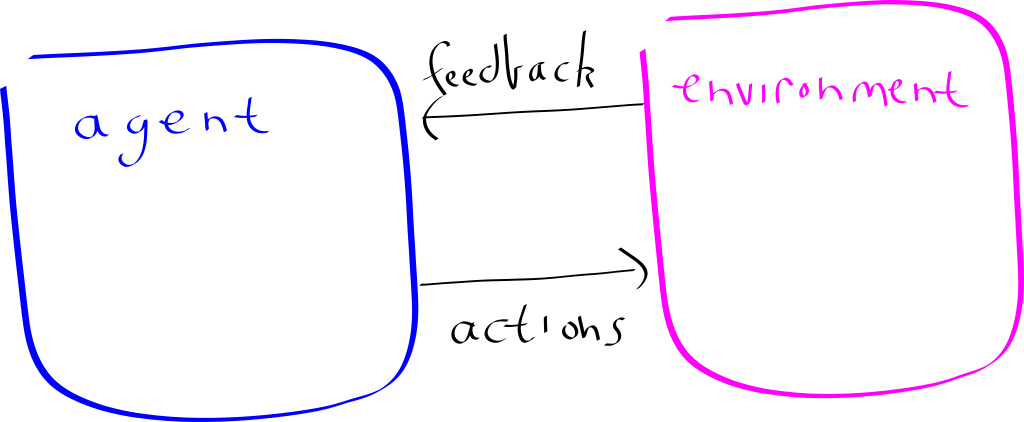 agent
feedback
environment
actions